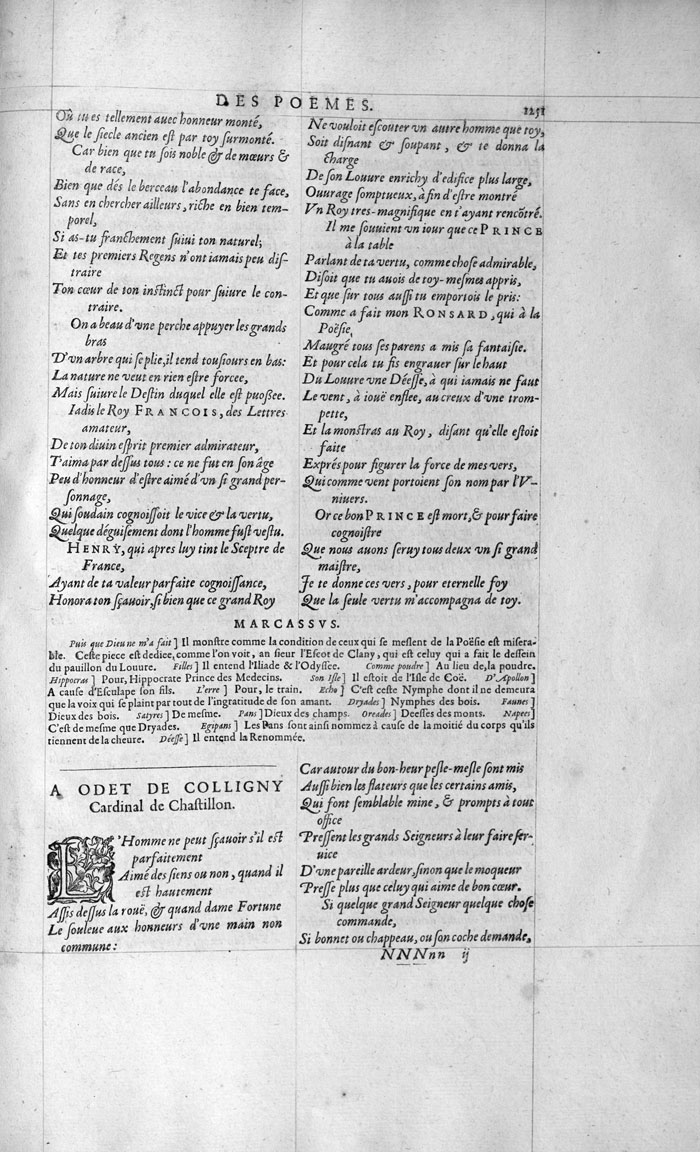 DES POEMES.
1251
Où tu es tellement auec honneur monté,
Que le siecle ancien est par toy surmonté.
Car bien que tu sois noble & de mœurs &
de race,
Bien que dés le berceau l'abondance te face,
Sans en chercher ailleurs, riche en bien tem-
porel,
Si as-tu franchement suiui ton naturel;
Et tes premiers Regens n'ont iamais peu dis-
traire
Ton cœur de ton instinct pour suiure le con-
traire.
On a beau d'vne perche appuyer les grands
bras
D'vn arbre qui se plie, il tend tousiours en bas:
La nature ne veut en rien estre forcee,
Mais suiure le Destin duquel elle est pousſee.
Iadis le Roy FRANCOIS, des Lettres
amateur,
De ton diuin esprit premier admirateur,
T'aima par dessus tous: ce ne fut en son âge
Peu d'honneur d'estre aimé d'vn si grand per-
sonnage,
Qui soudain cognoissoit le vice & la vertu,
Quelque déguisement dont l'homme fust vestu.
HENRY, qui apres luy tint le Sceptre de
France,
Ayant de ta valeur parfaite cognoissance,
Honora ton sçauoir, si bien que ce grand Roy
Ne vouloit escouter vn autre homme que toy,
Soit disnant & soupant, & te donna la
charge
De son Louure enrichy d'edifice plus large,
Ouurage somptueux, à fin d'estre montré
Vn Roy tres-magnifique en t'ayant rencõtré.
Il me souuient vn iour que ce PRINCE
à la table
Parlant de ta vertu, comme chose admirable,
Disoit que tu auois de toy-mesmes appris,
Et que sur tous aussi tu emportois le pris:
Comme a fait mon RONSARD, qui à la
Poësie,
Maugré tous ses parens a mis sa fantaisie.
Et pour cela tu fis engrauer sur le haut
Du Louure vne Déesse, à qui iamais ne faut
Le vent, à iouë enflee, au creux d'vne trom-
pette,
Et la monstras au Roy, disant qu'elle estoit
faite
Exprés pour figurer la force de mes vers,
Qui comme vent portoient son nom par l'V-
niuers.
Or ce bon PRINCE est mort, & pour faire
cognoistre
Que nous auons seruy tous deux vn si grand
maistre,
Je te donne ces vers, pour eternelle foy
Que la seule vertu m'accompagna de toy.
MARCASSVS.
Puis que Dieu ne m'a fait] Il monstre comme la condition de ceux qui se meslent de la Poësie est misera-
ble. Ceste piece est dediee, comme l'on voit, au sieur l'Escot de Clany, qui est celuy qui a fait le dessein
du pauillon du Louure. Filles] Il entend l'Iliade & l'Odyssee. Comme poudre] Au lieu de, la poudre.
Hippocras] Pour, Hippocrate Prince des Medecins. Son Isle] Il estoit de l'Isle de Coë. D'Apollon]
A cause d'Esculape son fils. L'erre] Pour, le train. Echo] C'est ceste Nymphe dont il ne demeura
que la voix qui se plaint par tout de l'ingratitude de son amant. Dryades] Nymphes des bois. Faunes]
Dieux des bois. Satyres] De mesme. Pans] Dieux des champs. Oreades] Deesses des monts. Napees]
C'est de mesme que Dryades. Egipans] Les Pans sont ainsi nommez à cause de la moitié du corps qu'ils
tiennent de la cheure. Déesse] Il entend la Renommée.
A ODET DE COLLIGNY
Cardinal de Chastillon.
L'Homme ne peut sçauoir s'il est
parfaitement
Aimé des siens ou non, quand il
est hautement
Assis dessus la rouë, & quand dame Fortune
Le souleue aux honneurs d'vne main non
commune:
Car autour du bon-heur pesle-mesle sont mis
Aussi bien les flateurs que les certains amis,
Qui font semblable mine, & prompts à tout
office
Pressent les grands Seigneurs à leur faire ser-
uice
D'vne pareille ardeur, sinon que le moqueur
Presse plus que celuy qui aime de bon cœur.
Si quelque grand Seigneur quelque chose
commande,
Si bonnet ou chappeau, ou son coche demande,
NNNnn ij